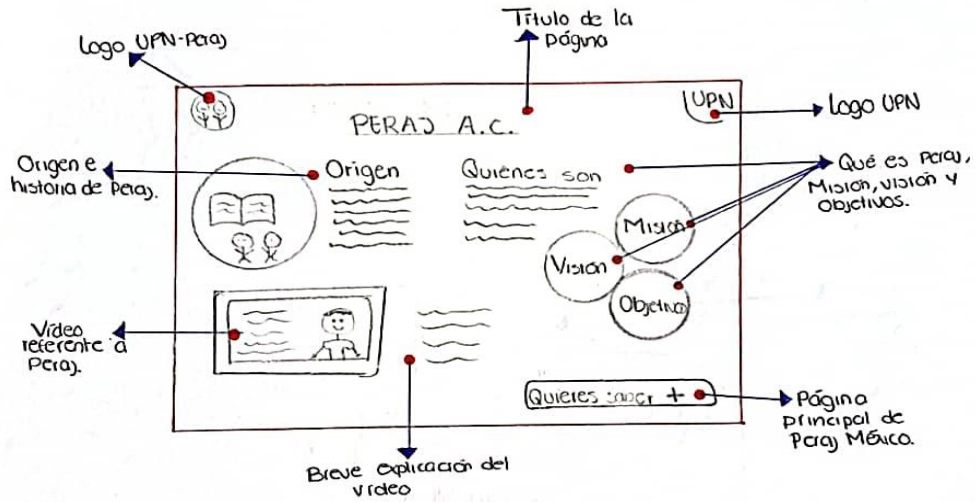 Título de la
página
Logo UPN-Peraj
UPN
Logo UPN
PERAJ A.C.
Origen e
historia de Peraj.
Origen
Quiénes son
Qué es Peraj,
Misión, visión y
Objetivos.
Misión
Visión
Objetivo
Vídeo
referente a
Peraj.
Quieres saber +
Página
principal de
Peraj México.
Breve explicación del
vídeo